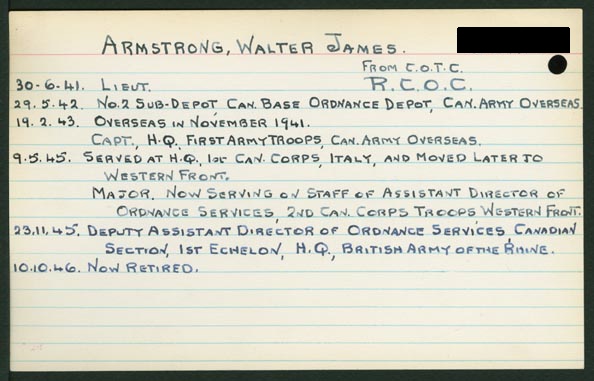 ARMSTRONG, WALTER JAMES.
FROM C.O.T.C.
30-6-41. LIEUT. R.C.O.C.
29.5.42. NO.2 SUB-DEPOT, CAN. BASE ORDNANCE DEPOT, CAN. ARMY OVERSEAS.
19.2.43. OVERSEAS IN NOVEMBER 1941.
CAPT., H.Q. FIRST ARMY TROOPS, CAN. ARMY OVERSEAS.
9.5.45. SERVED AT H.Q., 1ST CAN. CORPS, ITALY, AND MOVED LATER TO
WESTERN FRONT.
MAJOR. NOW SERVING ON STAFF OF ASSISTANT DIRECTOR OF
ORDNANCE SERVICES, 2ND CAN. CORPS TROOPS, WESTERN FRONT.
23.11.45. DEPUTY ASSISTANT DIRECTOR OF ORDNANCE SERVICES, CANADIAN
SECTION, 1ST ECHELON, H.Q., BRITISH ARMY OF THE RHINE.
10.10.46. NOW RETIRED.